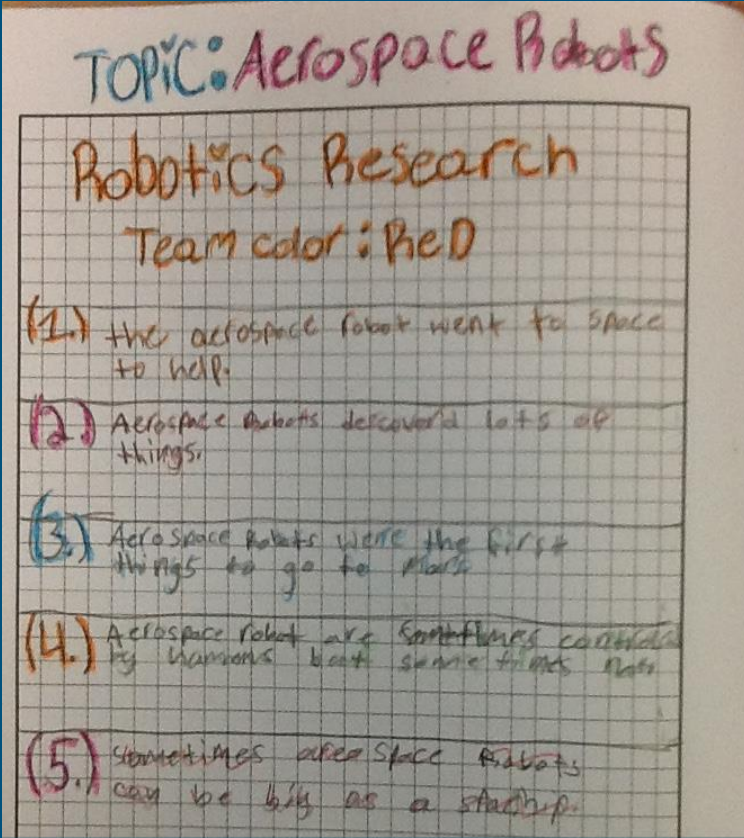 TOPiC: Aerospace Robots
Robotics Research
Team color: ReD
(1.) the aerospace robot went to space
to help.
(2.) Aerospace Robots descoverd lots of
things.
(3.) Aerospace Robots were the first
things to go to Mars
(4.) Aerospace robot are sometimes control
by humons but some times not
(5.) Sometimes areo space Robots
can be big as a starship.